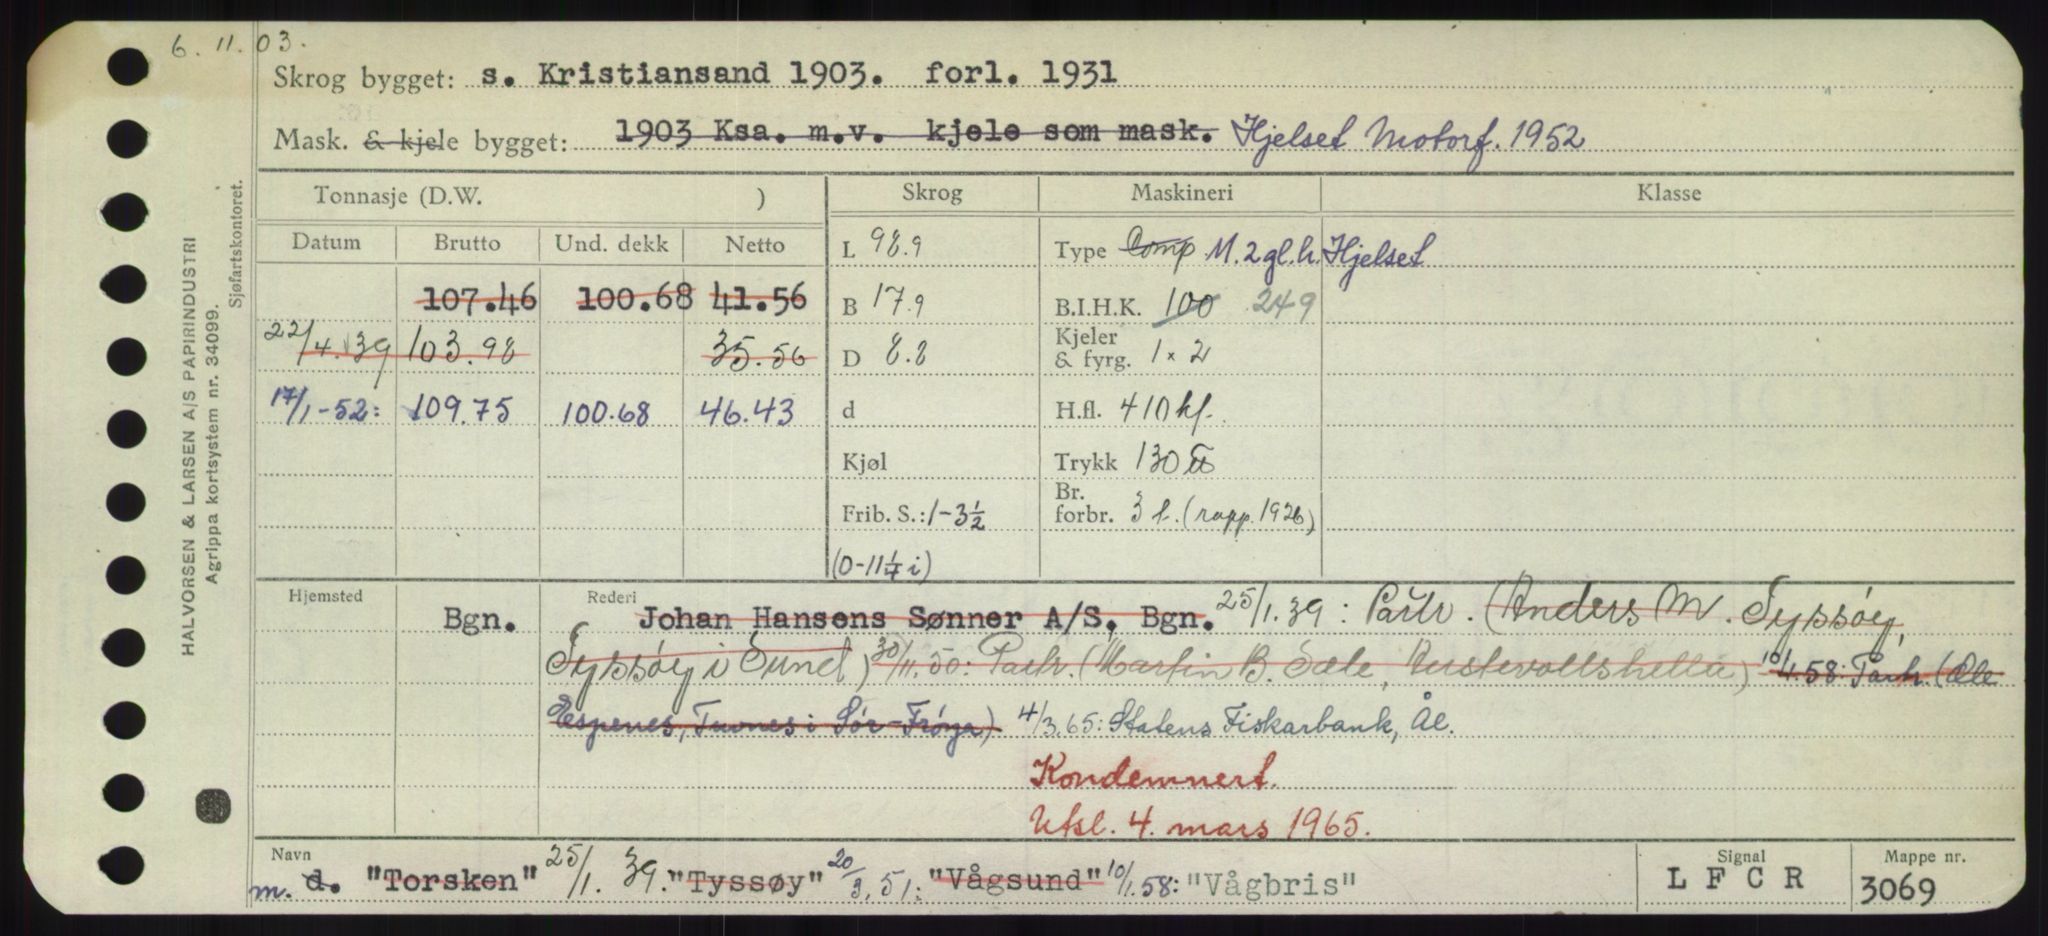 6. 11. 03.
Skrog bygget: s. Kristiansand 1903. forl. 1931
Mask. & kjele bygget: 1903 Ksa. m.v. kjele som mask. Hjelset Motorf. 1952
Tonnasje (D.W. ) Skrog Maskineri Klasse
Datum Brutto Und. dekk Netto L 98.9 Type Comp M. 2 gl. h. Hjelset
107.46 100.68 41.56 B 17.9 B.I.H.K. 100 249
22/4.39 103.98 35.56 D 8.8 Kjeler & fyrg. 1 x 2
17/1-52: 109.75 100.68 46.43 d H.fl. 410 kf.
Kjøl Trykk 130 ℔
Frib. S.: 1-3½ Br. forbr. 3 t. (rapp. 1926)
(0-11¼ i)
Hjemsted Bgn. Rederi Johan Hansens Sønner A/S, Bgn. 25/1.39: Partr. (Anders M. Tyssøy,
Tyssøy i Sund) 30/11.50: Partr. (Martin B. Sæle, Austevollshella) 10/1.58: Partr. (Ole
Espenes, Tuvnes i Sør-Frøya) 4/3.65: Statens Fiskarbank, Ål.
Kondemnert.
Utsl. 4. mars 1965.
Navn m. d. "Torsken" 25/1.39. "Tyssøy" 20/3.51: "Vågsund" 10/1.58: "Vågbris" Signal L F C R Mappe nr. 3069
HALVORSEN & LARSEN A/S PAPIRINDUSTRI
Agrippa kortsystem nr. 34099.
Sjøfartskontoret.